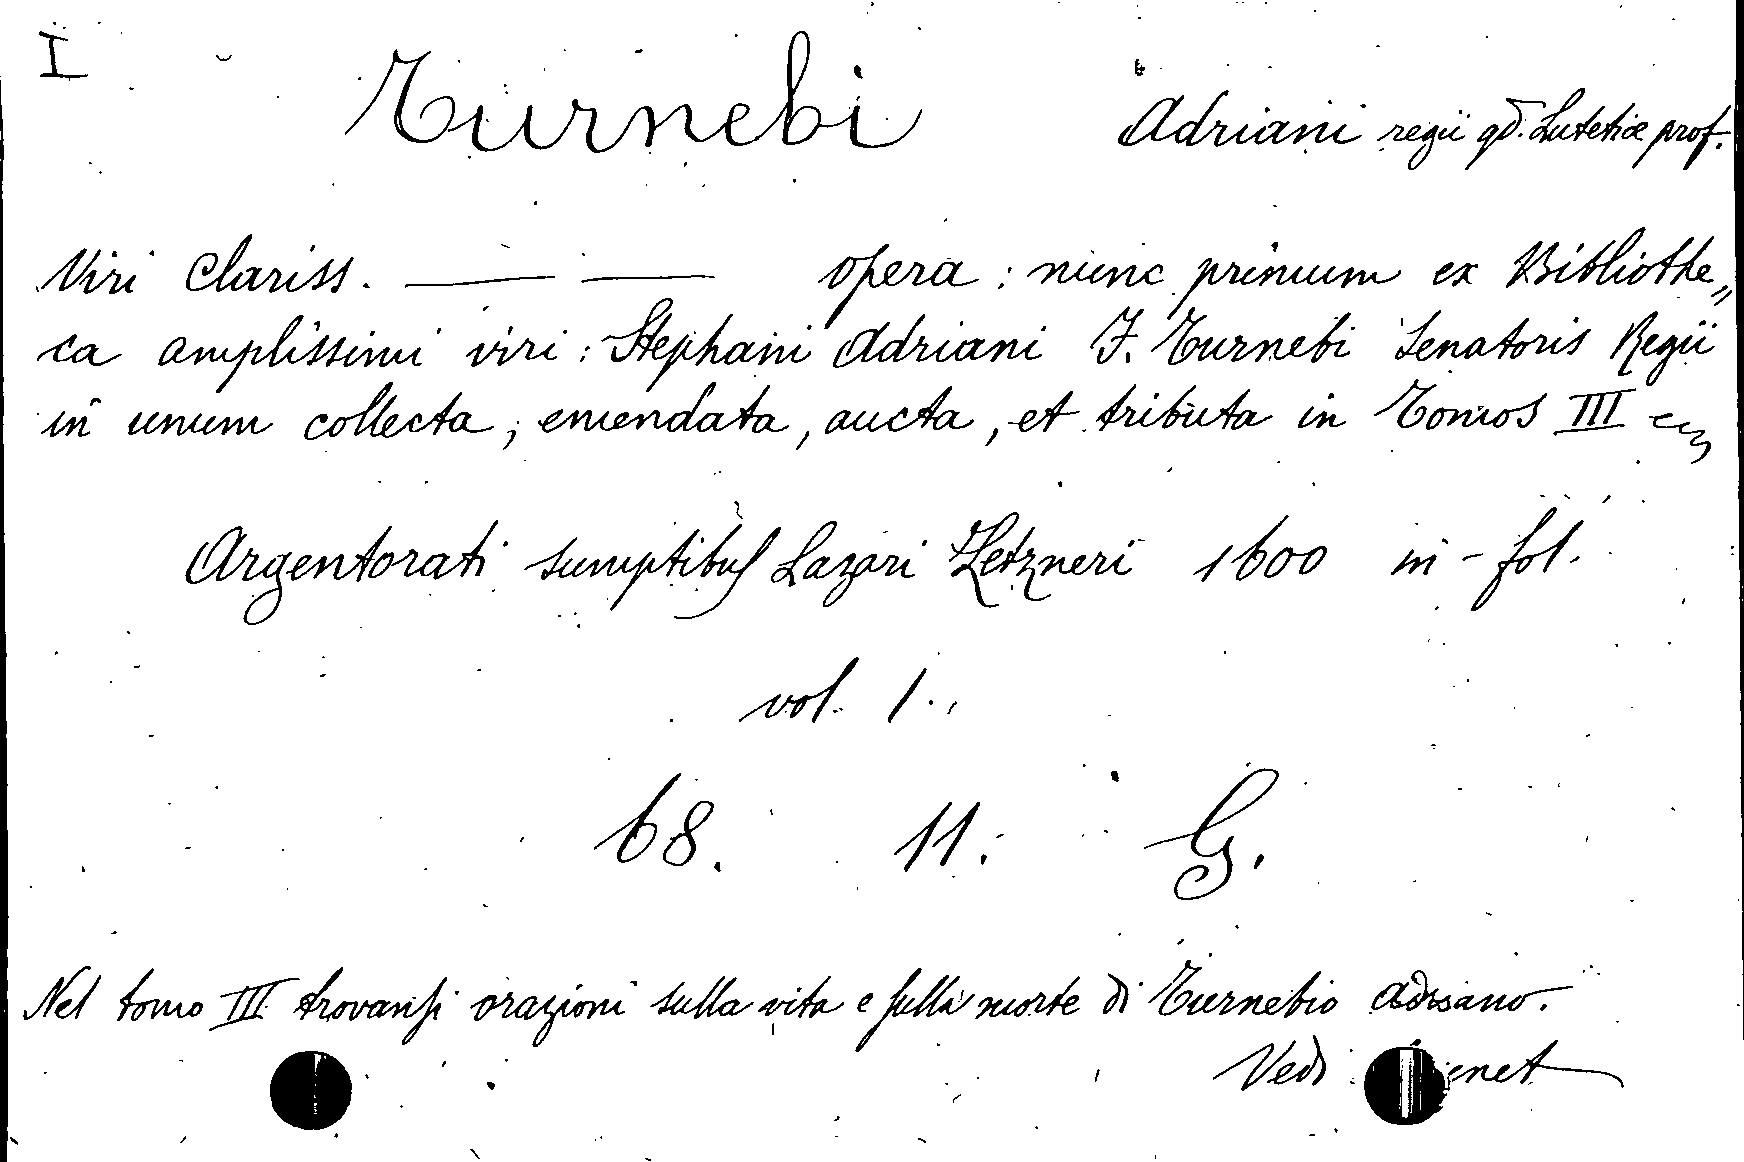 I
Turnebi Adriani regii qd. Lutetiæ prof.
Viri Clariss. —— —— opera : nunc primum ex Bibliothe„
ca amplissimi viri : Stephani Adriani F. Turnebi Senatoris Regii
in unum collecta, emendata, aucta, et tributa in Tomos III
Argentorati sumptibus Lazari Zetzneri 1600 in - fol.
vol. 1.
68. 11. G.
Nel tomo III trovansi orazioni sulla vita e sulla morte di Turnebio Adriano.
Vedi